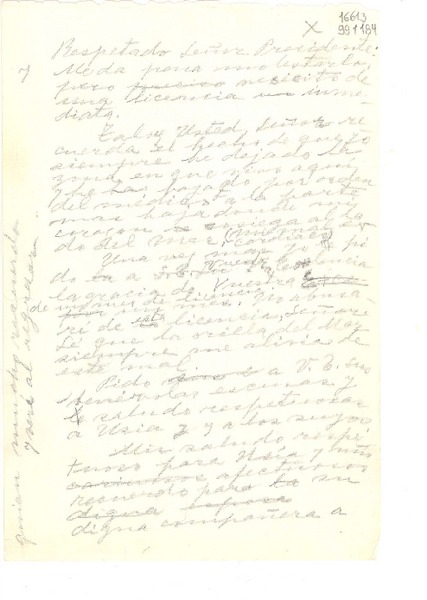 X
16613
991184
Respetado Señor Presidente:
Me da pena molestarlo,
pero preciso necesito de
una licencia un inme-
diata.
Tal vez Usted, Señor re-
cuerda el hecho de que yo
siempre he dejado la
zona en que vivo aquí
y he bajado por orden
del médico a la parte
mas baja donde mi
corazón se sosiega al la-
do del mar.
cardíaco
Una vez mas yo pi-
do a
la gracia de Vuestra
de un mes de licencia. No abusa-
ré de esta licencia, Señor.
Sé que la orilla del Mar
siempre me alivia de
este mal.
Pido a V. E. sus
benévolas escusas y
le saludo respetuosa
a Usia y a los suyos
Mis saludo respe-
tuoso para Usia y mi
cariñoso afectuoso
recuerdo para la su
digna esposa
digna compañera a
quien mucho recuerdo
y veré al regresar.
y